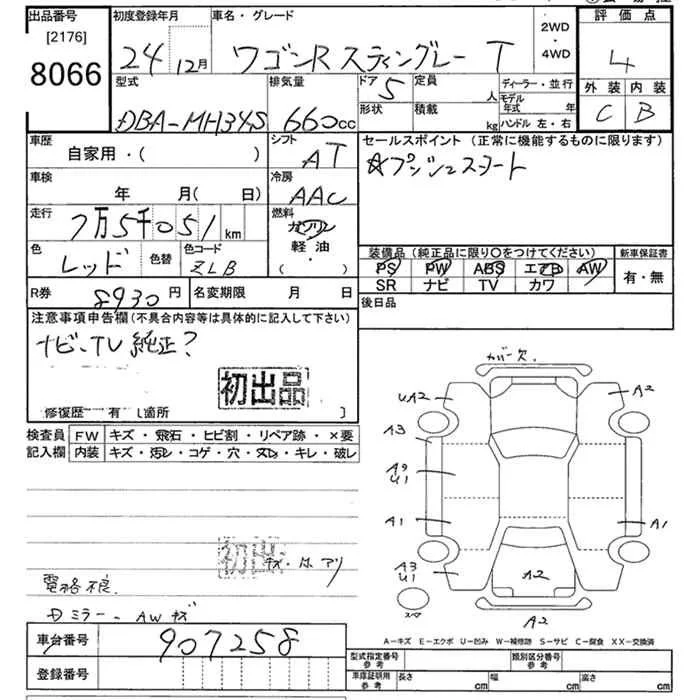 出品番号 初度登録年月 車名・グレード 2WD ・ 4WD 評価点
[2176]
8066
24 12月 ワゴンR スティングレー T 4
型式 排気量 ドア 5 定員 人 ディーラー・並行 外装 内装
形状 積載 kg モデル年式 年
DBA-MH34S 660cc ハンドル 左・右 C B
車歴 シフト セールスポイント (正常に機能するものに限ります)
自家用・( ) AT
車検 冷房
年 月( 日) AAC
走行 燃料
7万5千051km ガソリン
軽油・
( )
色 色替 色コード
レッド ZLB
装備品 (純正品に限り○をつけてください) 新車保証書
PS PW ABS エアB AW 有・無
SR ナビ TV カワ
R券 8930円 名変期限 月 日 後日品
注意事項申告欄(不具合内容等は具体的に記入して下さい)
ナビ、TV 純正?
初出品
修復歴 有 し箇所
検査員 FW キズ・飛石・ヒビ割・リペア跡・×要
記入欄 内装 キズ・汚レ・コゲ・穴・スレ・キレ・破レ
カバー欠
UA2 A2
A3
A9
U1
A1 A1
A3
U1
A2
A2
初出
電格不良
ミラー、AWキズ
A-キズ E-エクボ U-凹み W-補修跡 S-サビ C-腐食 XX-交換済
車台番号 907258
登録番号
型式指定番号 参考 類別区分番号 参考
車庫証明用 参考 長さ cm 幅 cm 高さ cm